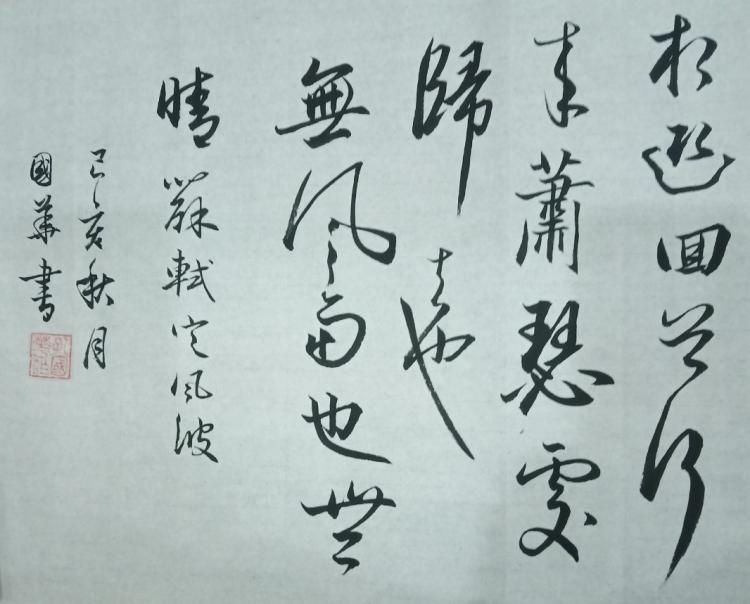 相迎回首向
來蕭瑟處
歸去也
無風雨也無
晴蘇軾定風波
己亥秋月
國華書